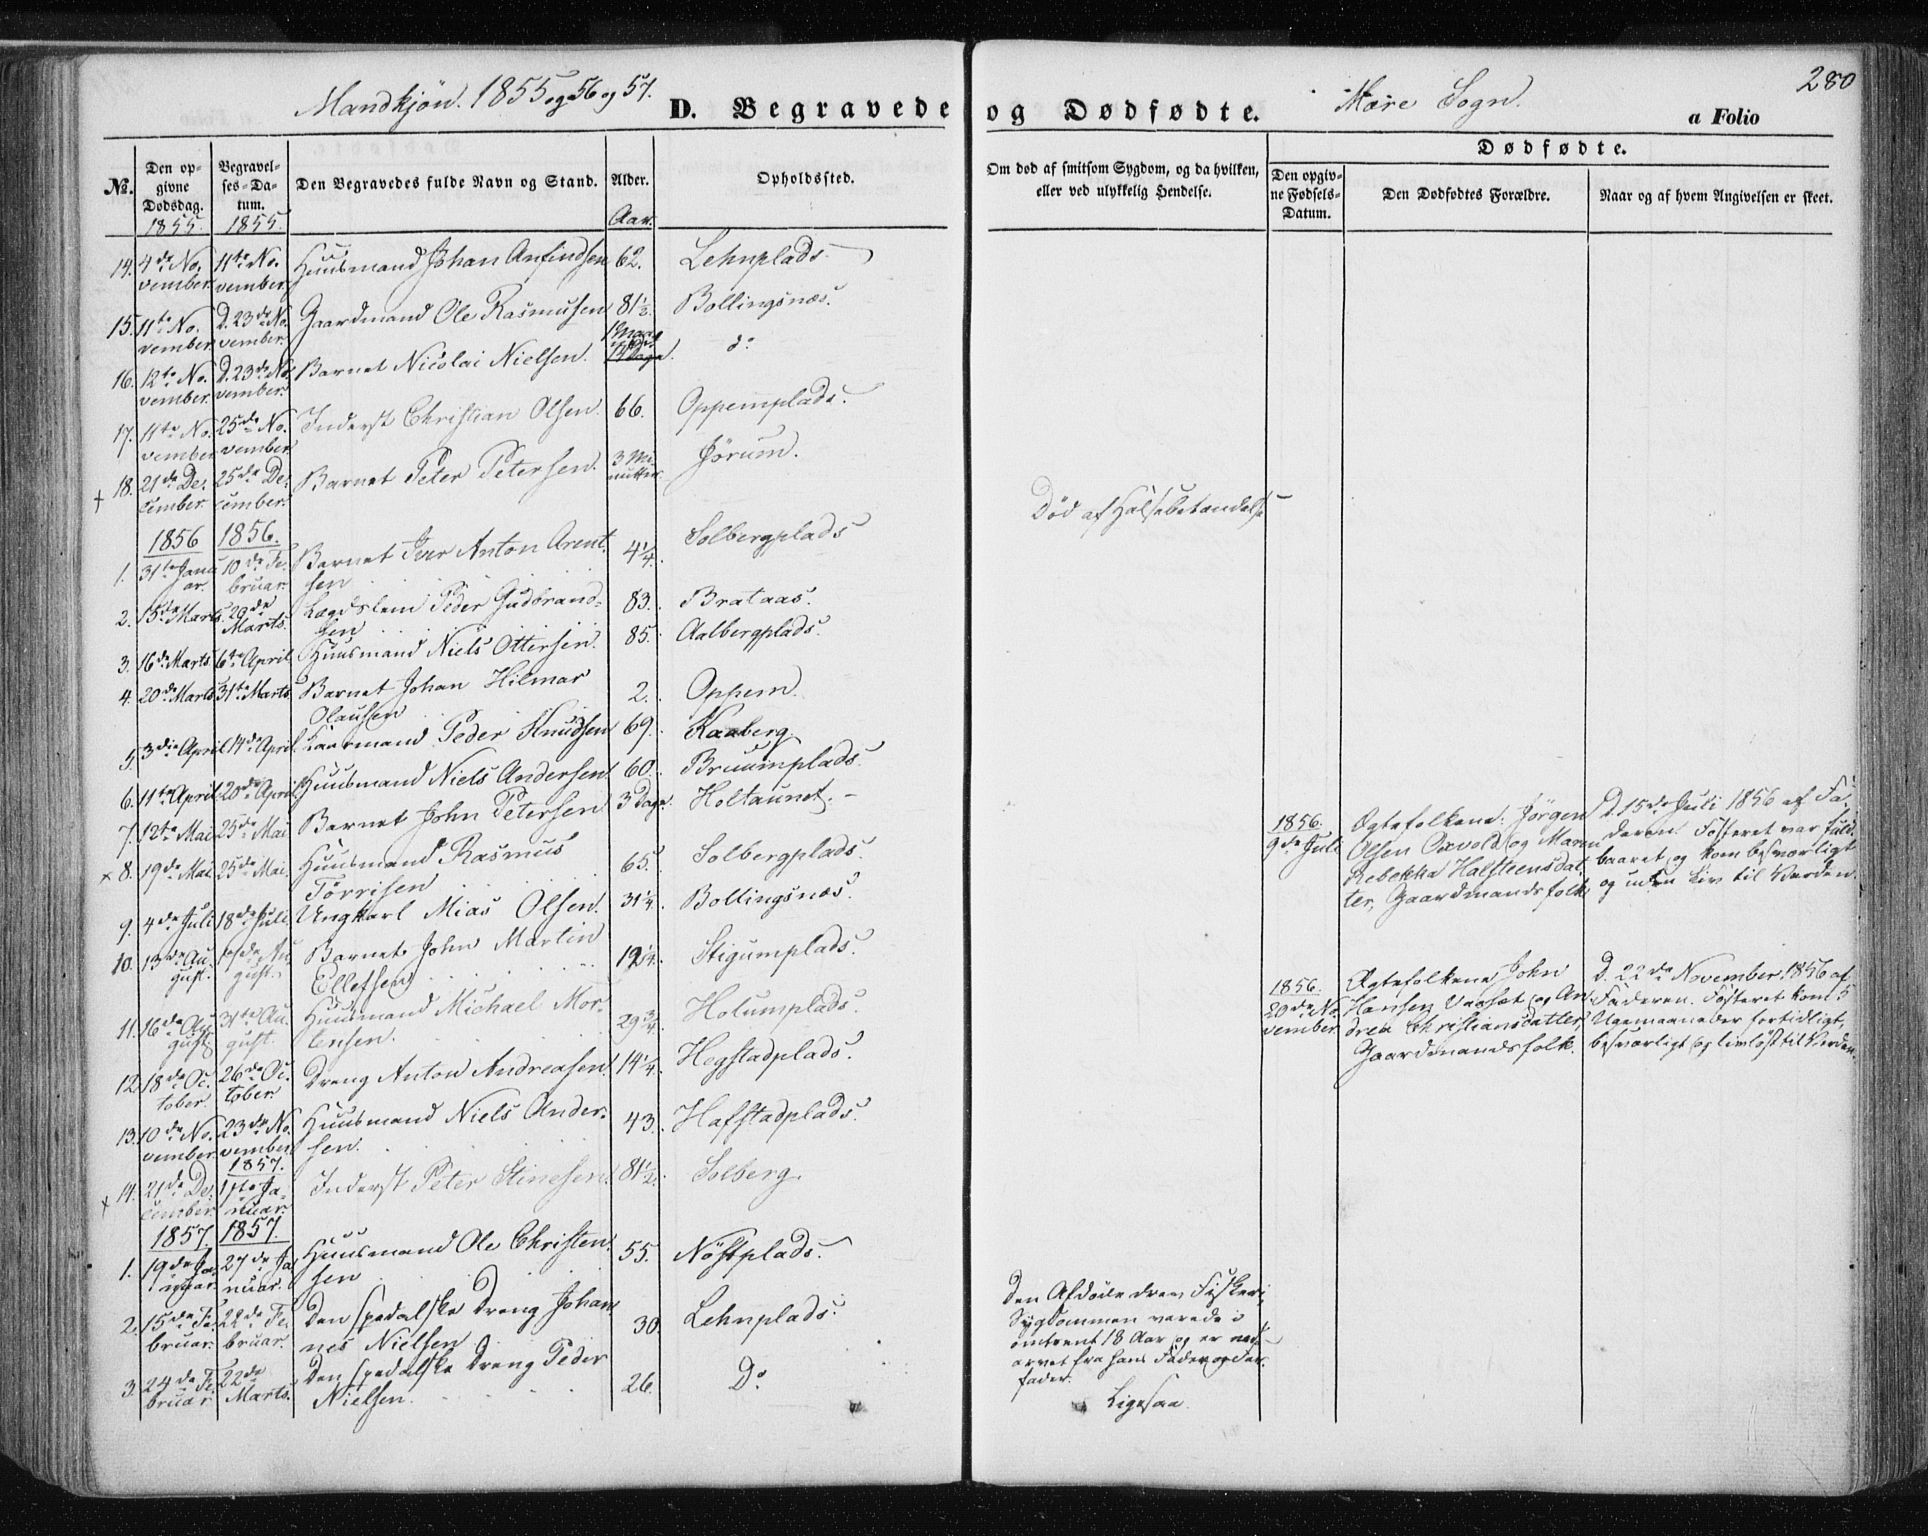 Mandkjøn. 1855 og 56 og 57.
D. Begravede og Dødfødte.
Mære Sogn.
280
a Folio
No.
Den opgivne Dødsdag. 1855.
Begravelses-Datum. 1855.
Den Begravedes fulde Navn og Stand.
Alder. Aar.
Opholdssted.
Om død af smitsom Sygdom, og da hvilken, eller ved ulykkelig Hendelse.
Dødfødte.
Den opgivne Fødsels-Datum.
Den Dødfødtes Forældre.
Naar og af hvem Angivelsen er skeet.
14. 4de November. 11te November. Huusmand Johan Anfindsen 62. Lehnplads.
15. 11te November. D. 23de November. Gaardmand Ole Rasmussen 81½. Bollingsnæs.
16. 12te November. D. 23de November. Barnet Nicolai Nielsen. 14 Dage. do
17. 11te November 25de November. Inderst Christian Olsen. 66. Oppemplads.
+ 18. 21de December. 25de December. Barnet Peter Petersen. 3 Minutter. Jørum.
1856 1856.
1. 31te Januar. 10de Februar. Barnet Iver Anton Arentsen 4¼. Solbergplads Død af Halsebetændelse
2. 15de Marts. 29de Marts. Lægdslem Peder Gudbrandsen 83. Brataas.
3. 16de Marts 6te April Huusmand Niels Ottersen. 85. Aalbergplads.
4. 20de Marts 31te Marts Barnet Johan Hilmar Olausen 2. Oppem.
5. 3die April 14de April. Kaarmand Peder Knudsen 69. Kaaberg.
6. 11te April 20de April Huusmand Niels Andersen. 60. Bruumplads.
7. 12te Mai 25de Mai Barnet John Petersen 3 Dage. Holtaunet.
x 8. 19de Mai. 25de Mai. Huusmand Rasmus Tørrisen 65. Solbergplads.
9. 4de Juli 18de Juli Ungkarl Mias Olsen. 31¼. Bollingsnæs.
10. 13de August. August. Barnet John Martin Ellefsen Stigumplads.
11. 16de August 31te August. Huusmand Michael Morlensen. 29¾. Holumplads.
12. 18de October. 26de October Dreng Anton Andreasen. 14¼. Hegstadplads.
13. 10de November. 23de November Huusmand Niels Andersen. 43. Hafstadplads.
1857.
x 14. 21de December. 1ste Januar. Inderst Peter Stinesen. 81½. Solberg.
1857. 1857.
1. 19de Januar. 27de Januar. Huusmand Ole Christensen 55. Nøstplads.
2. 15de Februar. 22de Februar. Den spedalske Dreng Johannes Nielsen 30. Lehnplads.
3. 24de Februar. 22de Marts. Den spedalske Dreng Peder Nielsen. 26. Do
Den Afdøde drev Fiskeri,
Sygdommen varede i
omtrent 18 Aar og er ned-
arvet fra hans Fader og Far-
fader.
Ligesaa.
1856. 9de Juli
Ægtefolkene: Jørgen
Olsen Oxvold og Maren
Rebekka Halsteensdat-
ter, Gaardmandsfolk
D. 15de Juli 1856 af Fa-
deren. Fosteret var fuld-
baaret og kom besværligt
og uden Liv til Verden.
1856. 20de November.
Ægtefolkene John
Hansen Vaasæt og An-
drea Christiansdatter,
Gaardmandsfolk.
D. 22de November 1856 af
Faderen. Fosteret kom 5
Ugemaaneder fortidligt,
besværligt og livløst til Verden.